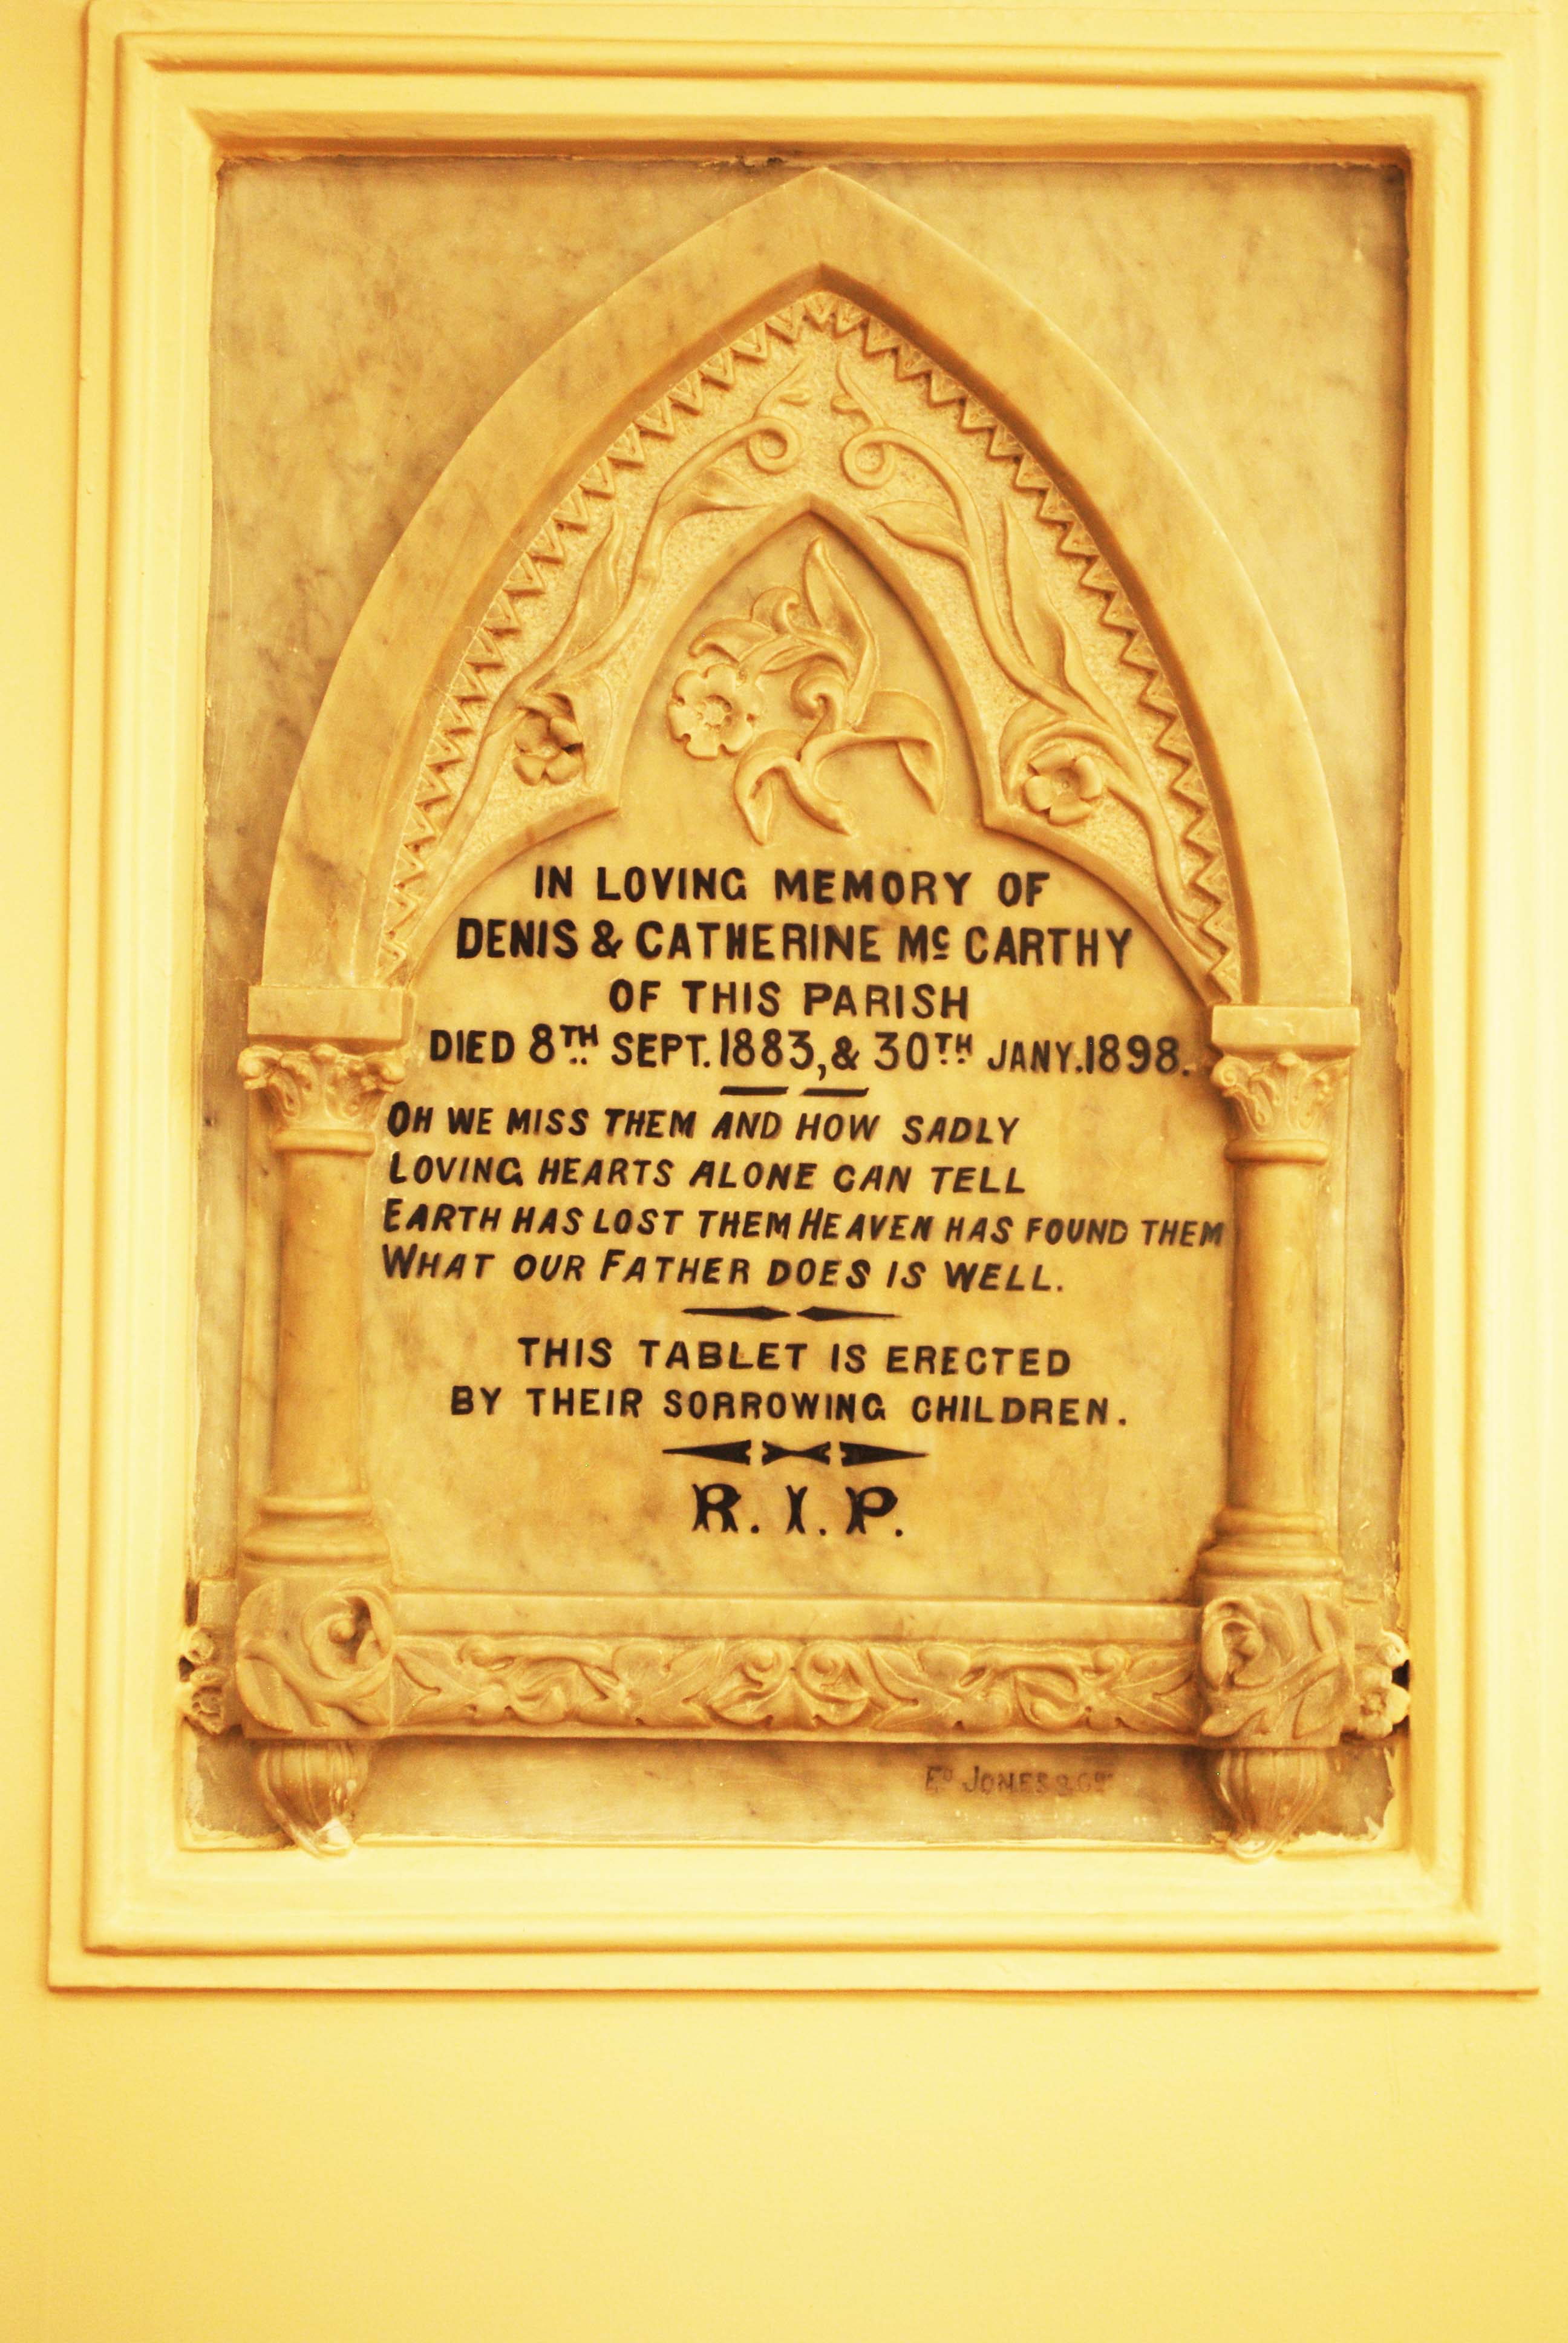 IN LOVING MEMORY OF
DENIS & CATHERINE Mc CARTHY
OF THIS PARISH
DIED 8TH SEPT. 1883, & 30TH JANY. 1898.
OH WE MISS THEM AND HOW SADLY
LOVING HEARTS ALONE CAN TELL
EARTH HAS LOST THEM HEAVEN HAS FOUND THEM
WHAT OUR FATHER DOES IS WELL.
THIS TABLET IS ERECTED
BY THEIR SORROWING CHILDREN.
R. I. P.
ED JONES & Co